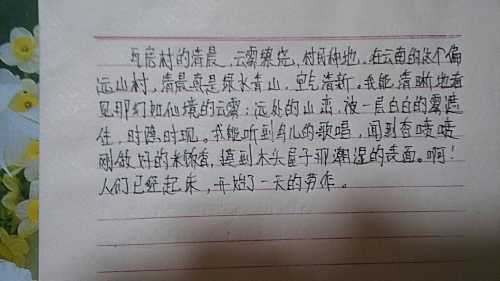 瓦房村的清晨，云雾缭绕，村民种地，在云南的这个偏
远山村，清晨真是绿水青山，空气清新。我能清晰地看
见那幻如仙境的云雾；远处的山峦，被一层白白的雾遮
住，时隐时现。我能听到鸟儿的歌唱，闻到香喷喷
刚做好的米饭香，摸到木头屋子那潮湿的表面。啊！
人们已经起床，开始了一天的劳作。